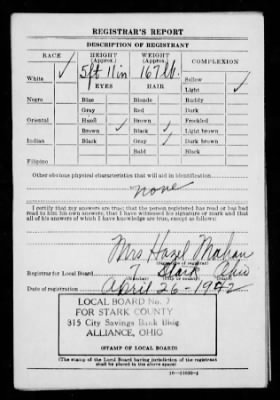 REGISTRAR'S REPORT
DESCRIPTION OF REGISTRANT
RACE HEIGHT (Approx.) WEIGHT (Approx.) COMPLEXION
White ✓ 5 ft 11 in 167 lb. Sallow
Light ✓
EYES HAIR
Negro Blue Blonde Ruddy
Gray Red Dark
Oriental Hazel Brown ✓ Freckled
Brown ✓ Black Light brown
Indian Black Gray ✓ Dark brown
Bald Black
Filipino
Other obvious physical characteristics that will aid in identification
none
I certify that my answers are true; that the person registered has read or has had
read to him his own answers; that I have witnessed his signature or mark and that
all of his answers of which I have knowledge are true, except as follows:
Mrs Hazel Mahan
(Signature of registrar)
Registrar for Local Board 7 Stark Ohio
Date of registration April 26-1942
LOCAL BOARD No. 7
FOR STARK COUNTY
315 City Savings Bank Bldg
ALLIANCE, OHIO
(STAMP OF LOCAL BOARD)
(The stamp of the Local Board having jurisdiction of the registrant
shall be placed in the above space.)